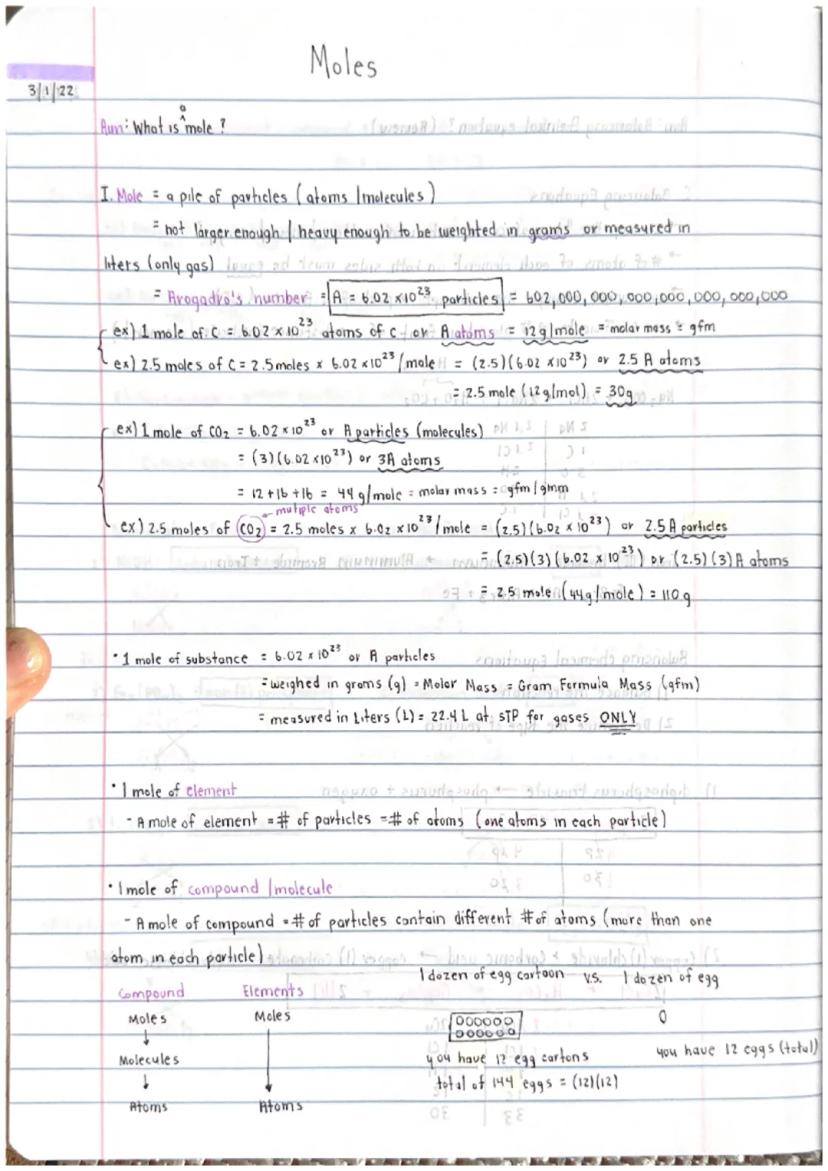 Moles
3/1/22
Aim: What is a mole?
I. Mole = a pile of particles (atoms/molecules)
= not larger enough / heavy enough to be weighted in grams or measured in
liters (only gas)
= Avogadro's number = A = 6.02 x10²³ particles = 602,000,000,000,000,000,000,000
ex) 1 mole of C = 6.02 x10²³ atoms of C or A atoms = 12g/mole = molar mass = gfm
ex) 2.5 moles of C = 2.5 moles x 6.02 x10²³/mole = (2.5)(6.02 x10²³) or 2.5 A atoms
= 2.5 mole (12g/mol) = 30g
ex) 1 mole of CO₂ = 6.02 x10²³ or A particles (molecules)
= (3)(6.02 x10²³) or 3A atoms
= 12+16+16 = 44 g/mole = molar mass = gfm/gmm
mutiple atoms
ex) 2.5 moles of CO₂ = 2.5 moles x 6.02 x10²³/mole = (2.5)(6.02 x 10²³) or 2.5 A particles
= (2.5)(3)(6.02 x 10²³) or (2.5)(3) A atoms
= 2.5 mole (44g/mole) = 110g
• 1 mole of substance = 6.02 x 10²³ or A particles
= weighed in grams (g) = Molar Mass = Gram Formula Mass (gfm)
= measured in Liters (L) = 22.4 L at STP for gases ONLY
• 1 mole of element
- A mole of element = # of particles = # of atoms (one atoms in each particle)
• 1 mole of compound/molecule
- A mole of compound = # of particles contain different # of atoms (more than one
atom in each particle)
1 dozen of egg cartoon v.s. 1 dozen of egg
Compound Elements
Moles Moles
you have 12 egg cartons you have 12 eggs (total)
Molecules
total of 144 eggs = (12)(12)
Atoms Atoms